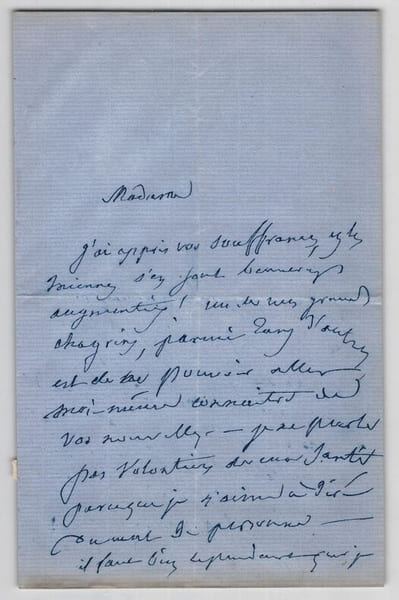 Madame
J'ai appris vos souffrances, et les
miennes s'en sont beaucoup
augmentées! un de mes grands
chagrins, parmi tant d'autres
est de ne pouvoir aller
moi-même connaitre de
vos nouvelles — je ne parle
pas volontiers de ma santé
parceque je n'aime à
de personne —
il faut bien cependant que je